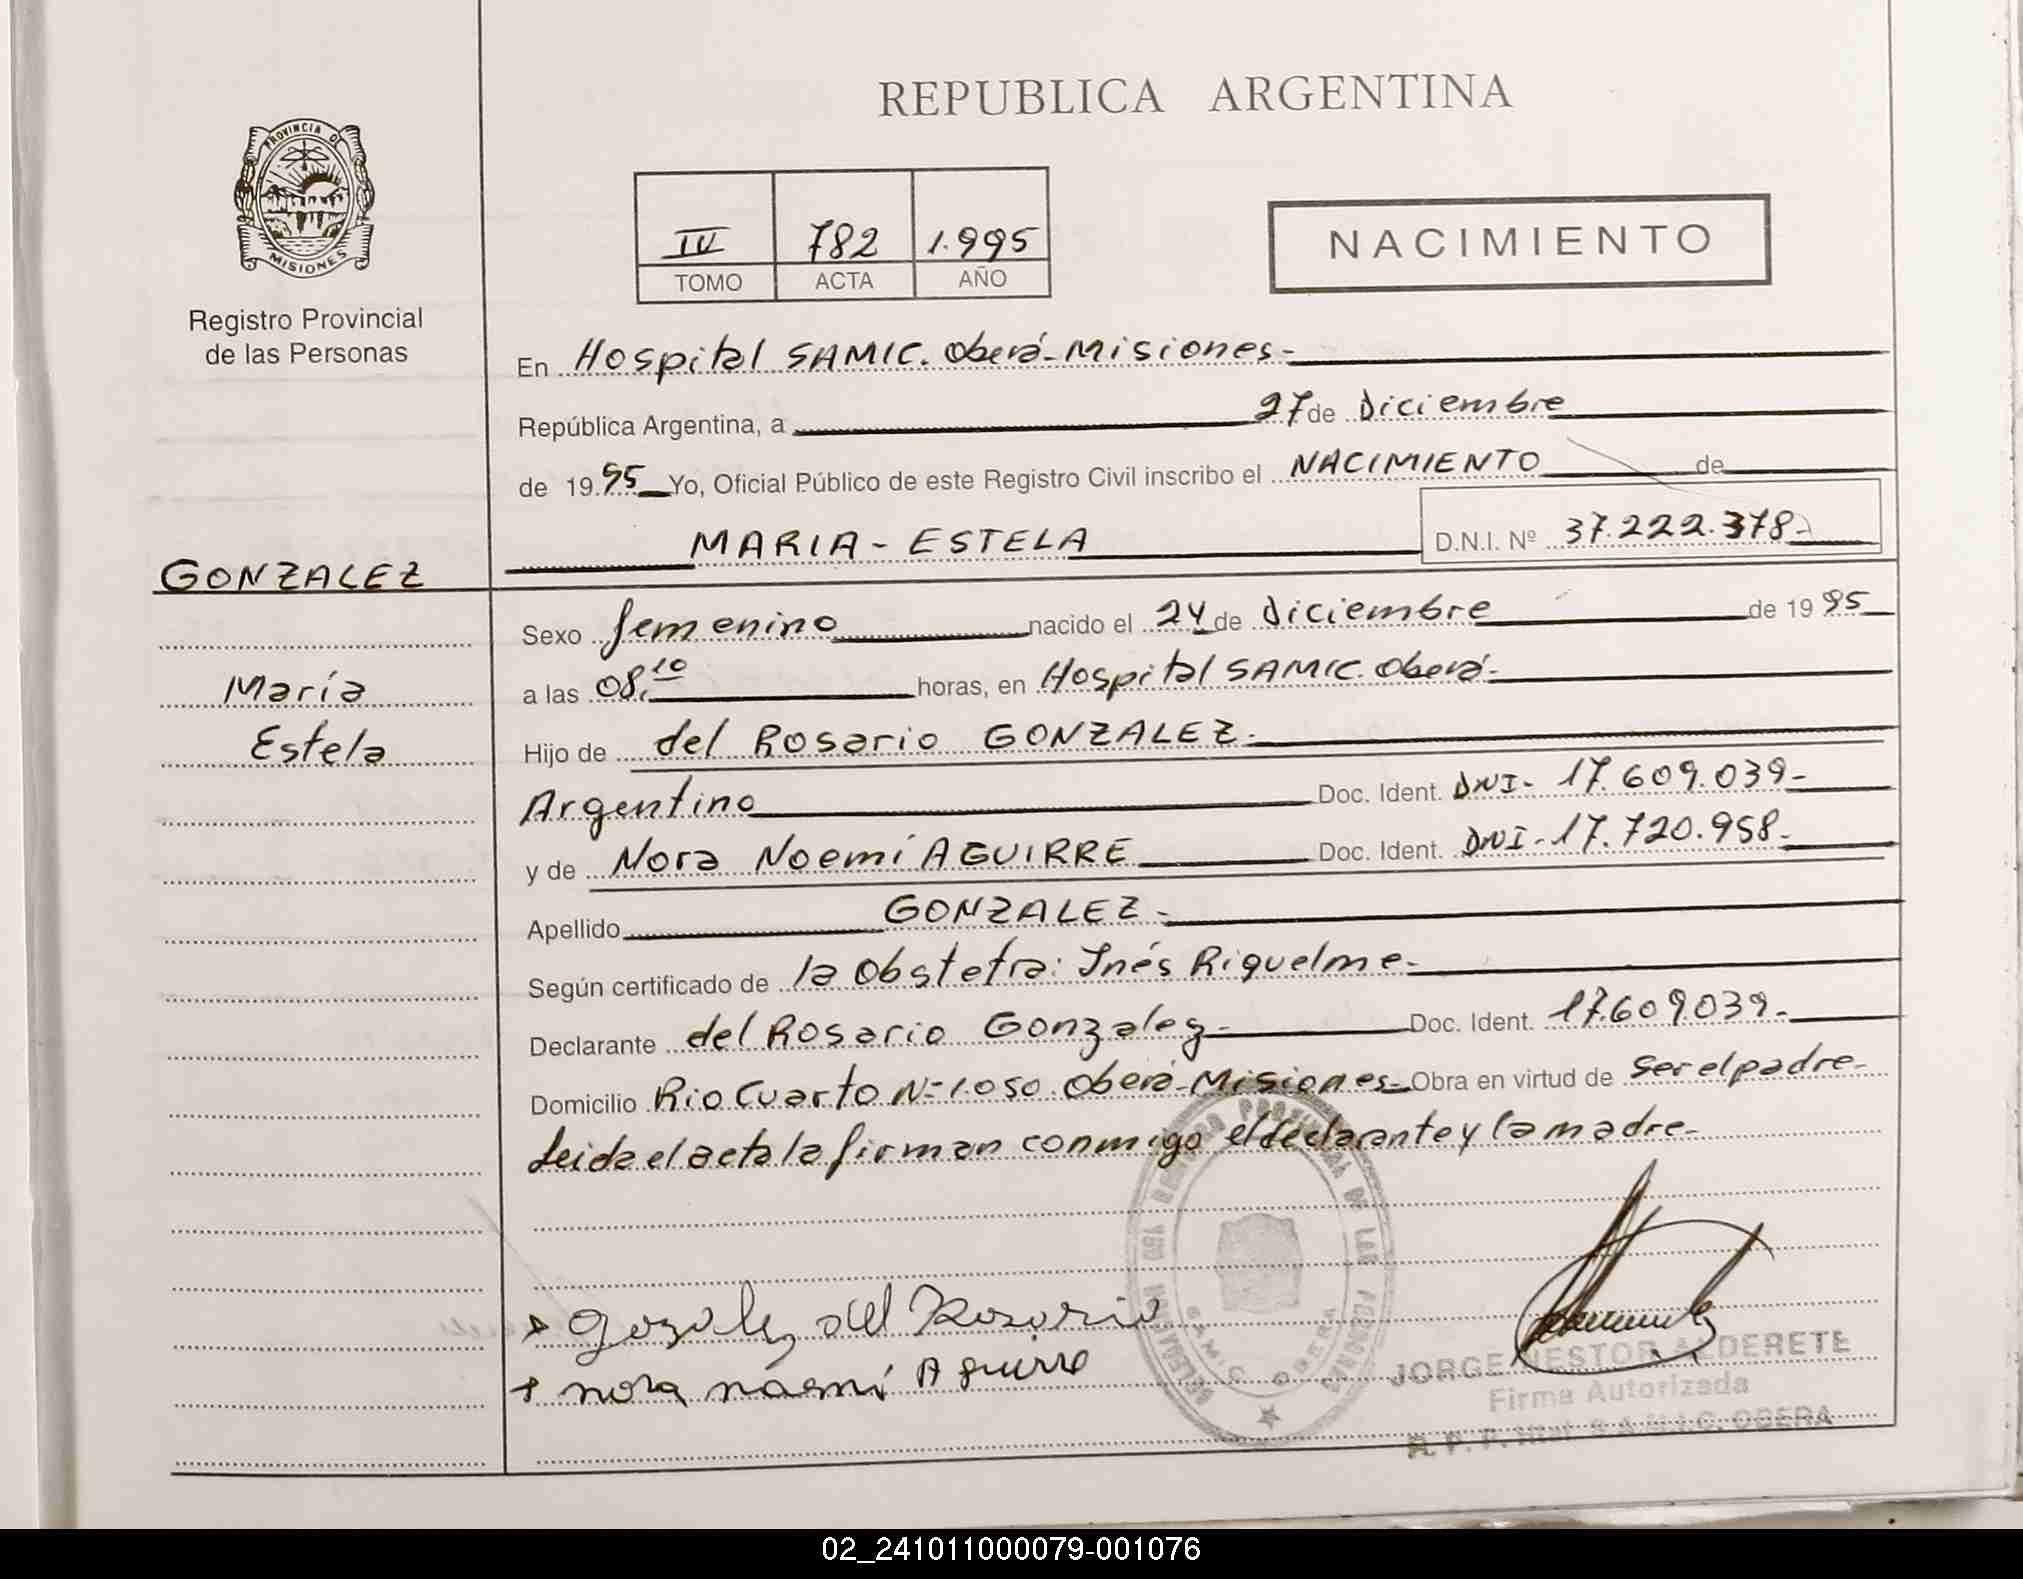 REPUBLICA ARGENTINA
PROVINCIA DE
MISIONES
Registro Provincial
de las Personas
IV 782 1.995
TOMO ACTA AÑO
NACIMIENTO
En Hospital SAMIC. Oberá-Misiones-
República Argentina, a 27 de Diciembre
de 19 95 Yo, Oficial Público de este Registro Civil inscribo el NACIMIENTO de
MARIA-ESTELA D.N.I. Nº 37.222.378-
GONZALEZ
María
Estela
Sexo femenino nacido el 24 de diciembre de 19 95
a las 08.10 horas, en Hospital SAMIC. Oberá-
Hijo de del Rosario GONZALEZ-
Argentino Doc. Ident. DNI- 17.609.039-
y de Nora Noemí AGUIRRE Doc. Ident. DNI-17.720.958-
Apellido GONZALEZ-
Según certificado de la Obstetra: Inés Riquelme-
Declarante del Rosario Gonzalez- Doc. Ident. 17.609.039-
Domicilio Rio Cuarto Nº 1.050. Oberá-Misiones- Obra en virtud de ser el padre-
Leida el acta la firman conmigo el declarante y la madre-
Gozalez del Rosario
nora noemi Aguirre
REGISTRO PROVINCIAL DE LAS PERSONAS
SAMIC OBERA
JORGE NESTOR ALDERETE
Firma Autorizada
R. P. P. Htal S.A.M.I.C. OBERA
02_241011000079-001076